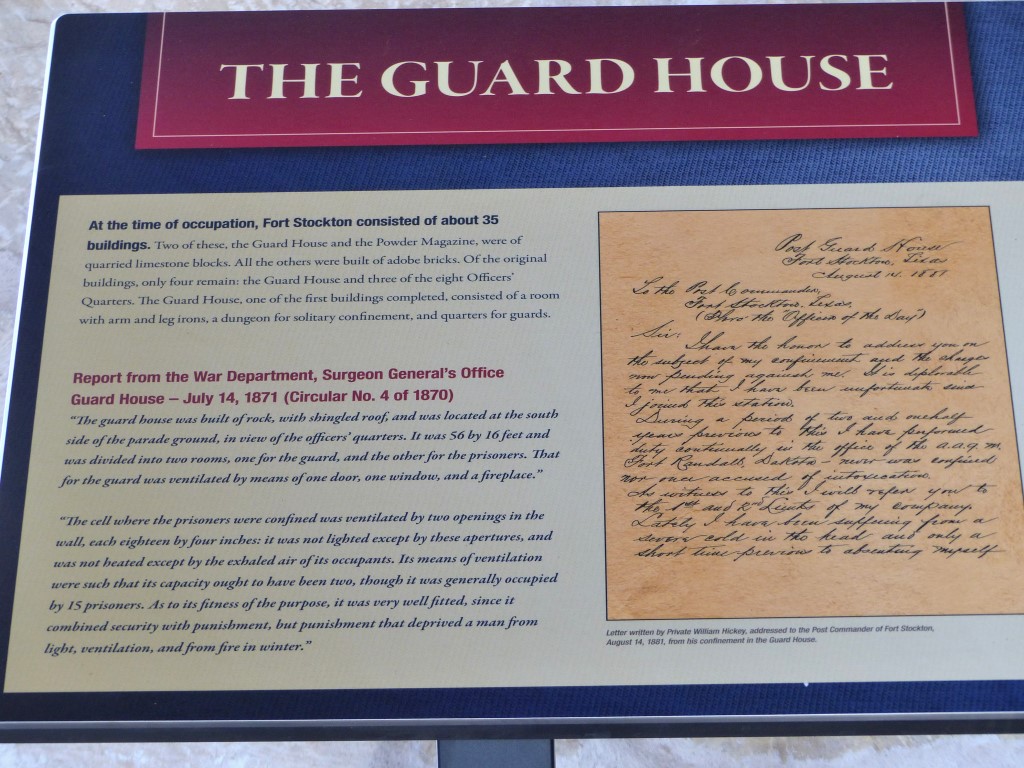 THE GUARD HOUSE
At the time of occupation, Fort Stockton consisted of about 35
buildings. Two of these, the Guard House and the Powder Magazine, were of
quarried limestone blocks. All the others were built of adobe bricks. Of the original
buildings, only four remain: the Guard House and three of the eight Officers'
Quarters. The Guard House, one of the first buildings completed, consisted of a room
with arm and leg irons, a dungeon for solitary confinement, and quarters for guards.
Report from the War Department, Surgeon General's Office
Guard House – July 14, 1871 (Circular No. 4 of 1870)
"The guard house was built of rock, with shingled roof, and was located at the south
side of the parade ground, in view of the officers' quarters. It was 56 by 16 feet and
was divided into two rooms, one for the guard, and the other for the prisoners. That
for the guard was ventilated by means of one door, one window, and a fireplace."
"The cell where the prisoners were confined was ventilated by two openings in the
wall, each eighteen by four inches: it was not lighted except by these apertures, and
was not heated except by the exhaled air of its occupants. Its means of ventilation
were such that its capacity ought to have been two, though it was generally occupied
by 15 prisoners. As to its fitness of the purpose, it was very well fitted, since it
combined security with punishment, but punishment that deprived a man from
light, ventilation, and from fire in winter."
Post Guard House
Fort Stockton, Texas
August 14, 1881
To the Post Commander,
Fort Stockton, Texas,
(Thro the Officer of the Day)
Sir:
I have the honor to address you on
the subject of my confinement and the charges
now pending against me. It is deplorable
to me that I have been unfortunate since
I joined this station.
During a period of two and onehalf
years previous to this I have performed
duty continually in the office of the a.a.g. m.
Fort Randall, Dakota - never was confined
nor once accused of intoxication.
As witness to this I will refer you to
the 1st and 2d Lieuts of my company.
Lately I have been suffering from a
severe cold in the head and only a
short time previous to absenting myself
Letter written by Private William Hickey, addressed to the Post Commander of Fort Stockton,
August 14, 1881, from his confinement in the Guard House.